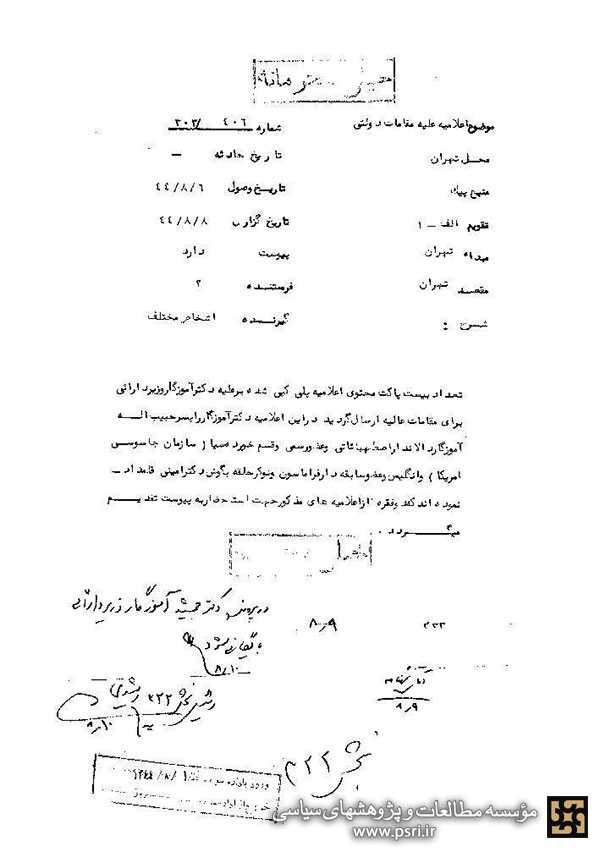 خیلی محرمانه
موضوع اعلامیه علیه مقامات دولتی
شماره ۴۰۶ /۳۰۳
محل تهران
تاریخ حادثه —
منبع پیک
تاریخ وصول ۴۴/۸/۶
تقویم الف - ۱
تاریخ گزارش ۴۴/۸/۸
مبداء تهران
پیوست دارد
مقصد تهران
فرستنده ؟
شرح :
گیرنده اشخاص مختلف
تعداد بیست پاکت محتوی اعلامیه پلی کپی شده برعلیه دکترآموزگار وزیر دارائی
برای مقامات عالیه ارسال گردید در این اعلامیه دکترآموزگار را پسر حبیب اله
آموزگار دلال بهائی وعضو رسمی وقسم خورده سیا ( سازمان جاسوسی
امریکا ) وانگلیس وعضو سابقه دار فراماسون ونوکر حلقه بگوش دکتر امینی قلمداد -
نموده اند که دو فقره از اعلامیه های مذکور جهت استحضار به پیوست تقدیم
میگردد .
در پرونده دکتر جمشید آموزگار وزیر دارائی
۸٫۹
۳۳۳
بایگانی شود
۸٫۱۰
۸٫۹
بخش ۳۲۲
۸٫۱۰
بخش ۳۲۲
۱۳۴۴ /۸/
مؤسسه مطالعات و پژوهشهای سیاسی
www.psri.ir